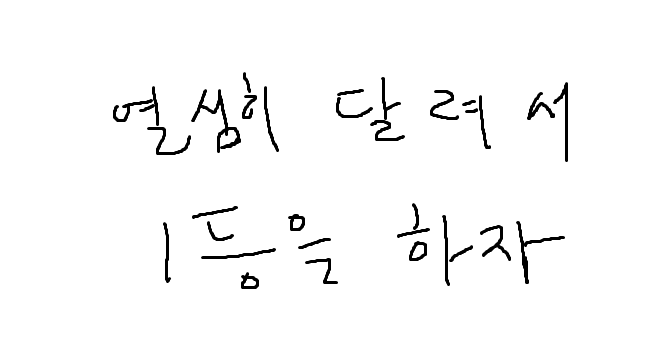 열심히 달려서
1등을 하자